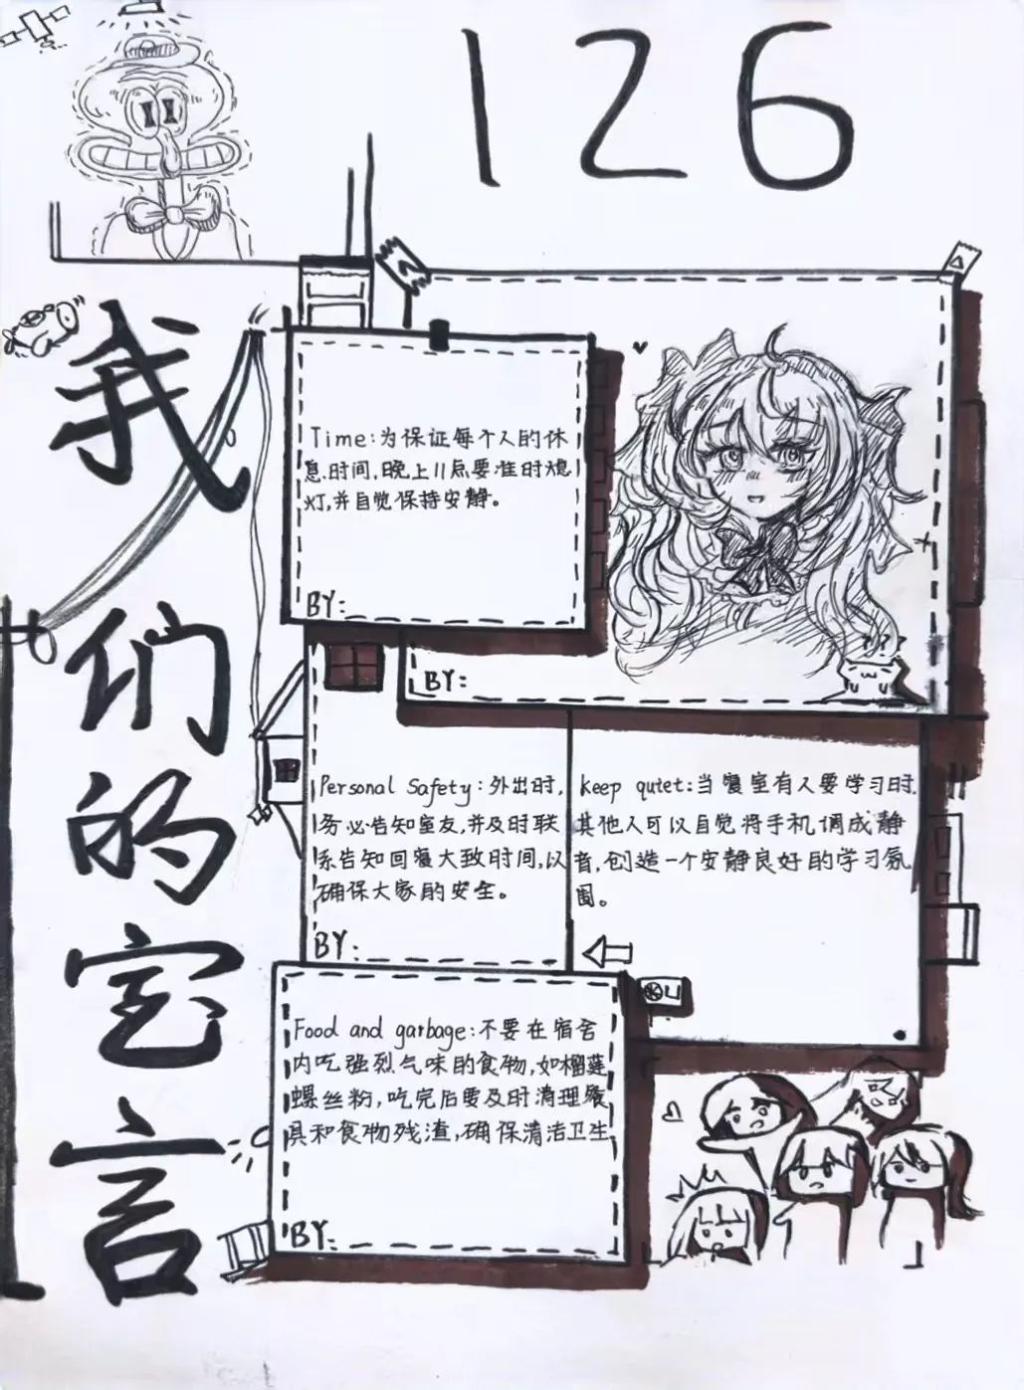 126
我们的室言
Time:为保证每个人的休
息时间,晚上11点要准时熄
灯,并自觉保持安静。
BY:
BY:
Personal Safety:外出时,
务必告知室友,并及时联
系告知回寝大致时间,以
确保大家的安全。
BY:
keep qutet:当寝室有人要学习时,
其他人可以自觉将手机调成静
音,创造一个安静良好的学习氛
围。
Food and garbage:不要在宿舍
内吃强烈气味的食物,如榴莲
螺丝粉,吃完后要及时清理餐
具和食物残渣,确保清洁卫生
BY: